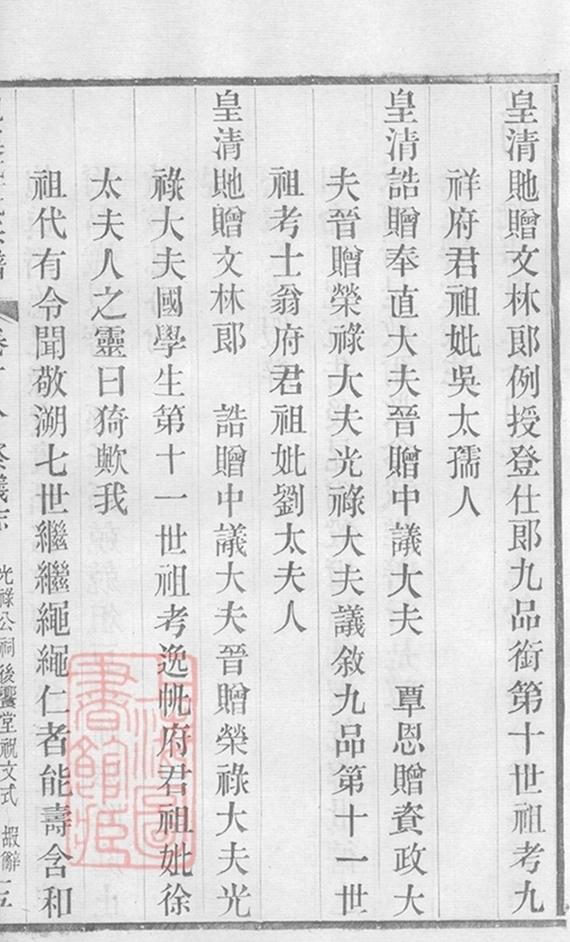 皇清貤贈文林郎例授登仕郎九品銜第十世祖考九
祥府君祖妣吳太孺人
皇清誥贈奉直大夫晉贈中議大夫 覃恩贈資政大
夫晉贈榮祿大夫光祿大夫議敘九品第十一世
祖考士翁府君祖妣劉太夫人
皇清貤贈文林郎 誥贈中議大夫晉贈榮祿大夫光
祿大夫國學生第十一世祖考逸帆府君祖妣徐
太夫人之靈曰猗歟我
祖代有令聞敬溯七世繼繼繩繩仁者能壽含和
光祿公祠後饗堂祝文式 嘏辭